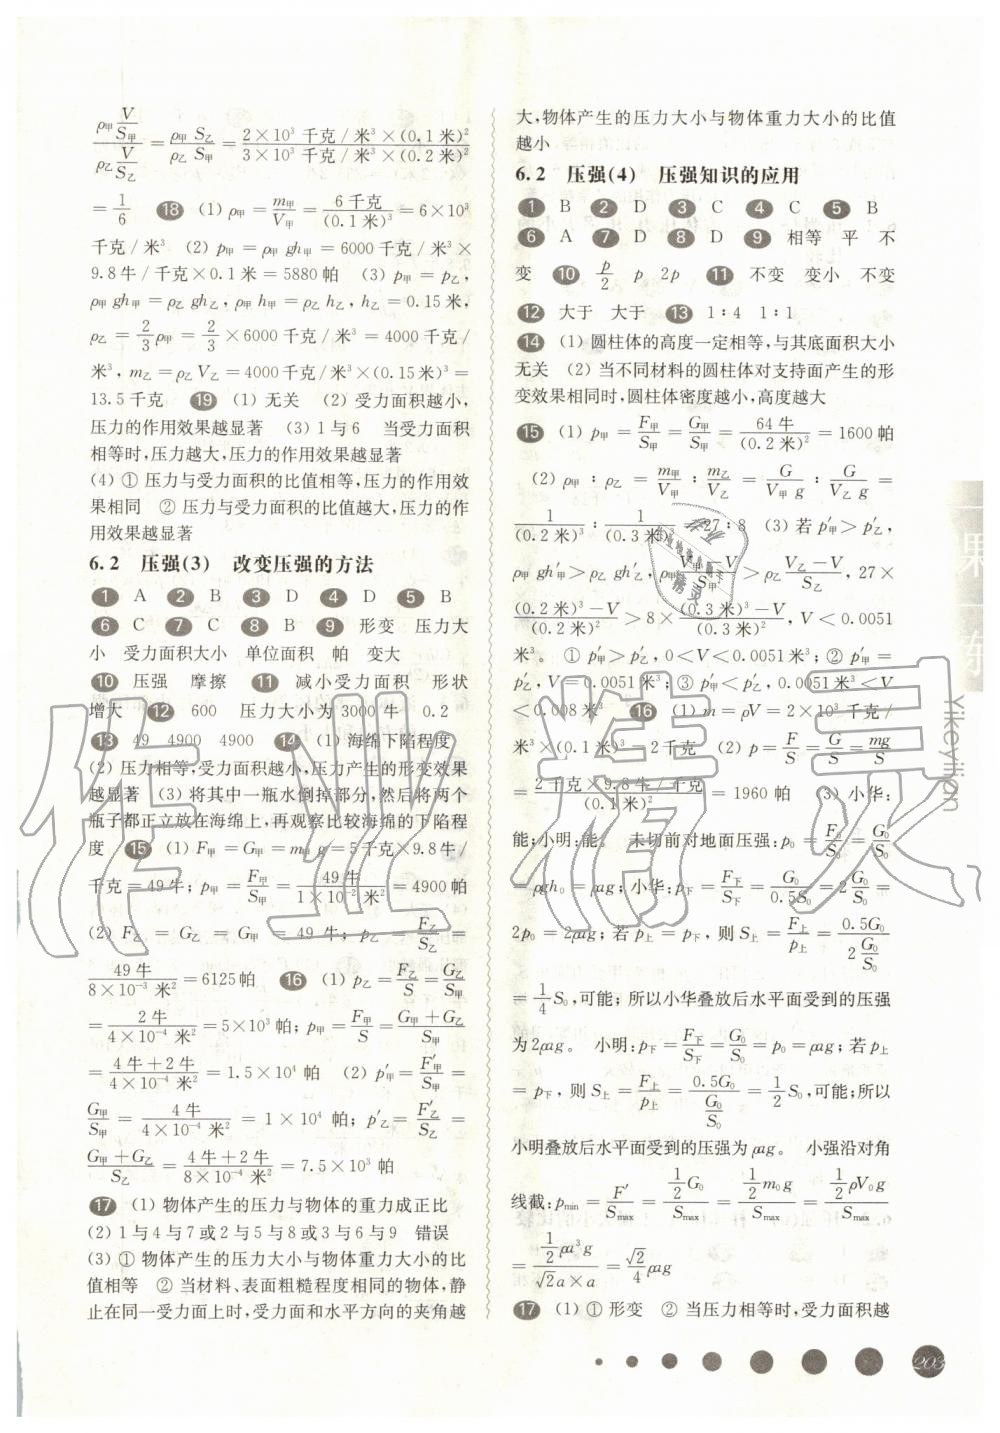 ρ甲 V/S甲 / ρ乙 V/S乙 = ρ甲 S乙 / ρ乙 S甲 = 2×10³ 千克/米³×(0.1米)² / 3×10³ 千克/米³×(0.2米)²
= 1/6 18 (1) ρ甲 = m甲/V甲 = 6千克/(0.1米)³ = 6×10³
千克/米³ (2) p甲 = ρ甲 gh甲 = 6000千克/米³×
9.8牛/千克×0.1米 = 5880帕 (3) p甲 = p乙,
ρ甲 gh甲 = ρ乙 gh乙, ρ甲 h甲 = ρ乙 h乙, h乙 = 0.15米,
ρ乙 = 2/3 ρ甲 = 2/3 × 6000千克/米³ = 4000千克/
米³, m乙 = ρ乙V乙 = 4000千克/米³×(0.15米)³ =
13.5千克 19 (1) 无关 (2) 受力面积越小,
压力的作用效果越显著 (3) 1与6 当受力面积
相等时,压力越大,压力的作用效果越显著
(4) ① 压力与受力面积的比值相等,压力的作用效
果相同 ② 压力与受力面积的比值越大,压力的作
用效果越显著
6.2 压强(3) 改变压强的方法
1 A 2 B 3 D 4 D 5 B
6 C 7 C 8 B 9 形变 压力大
小 受力面积大小 单位面积 帕 变大
10 压强 摩擦 11 减小受力面积 形状
增大 12 600 压力大小为3000牛 0.2
13 49 4900 4900 14 (1) 海绵下陷程度
(2) 压力相等,受力面积越小,压力产生的形变效果
越显著 (3) 将其中一瓶水倒掉部分,然后将两个
瓶子都正立放在海绵上,再观察比较海绵的下陷程
度 15 (1) F甲 = G甲 = m甲 g = 5千克×9.8牛/
千克 = 49牛; p甲 = F甲/S甲 = 49牛/1×10⁻² 米² = 4900帕
(2) F乙 = G乙 = G甲 = 49牛; p乙 = F乙/S乙 =
49牛/8×10⁻³ 米² = 6125帕 16 (1) p乙 = F乙/S = G乙/S甲
= 2牛/4×10⁻⁴ 米² = 5×10³ 帕; p甲 = F甲/S = G甲+G乙/S甲
= 4牛+2牛/4×10⁻⁴ 米² = 1.5×10⁴ 帕 (2) p′甲 = F′甲/S甲 =
G甲/S甲 = 4牛/4×10⁻⁴ 米² = 1×10⁴ 帕; p′乙 = F′乙/S乙 =
G甲+G乙/S乙 = 4牛+2牛/8×10⁻⁴ 米² = 7.5×10³ 帕
17 (1) 物体产生的压力与物体的重力成正比
(2) 1与4与7或2与5与8或3与6与9 错误
(3) ① 物体产生的压力大小与物体重力大小的比
值相等 ② 当材料、表面粗糙程度相同的物体,静
止在同一受力面上时,受力面和水平方向的夹角越
大,物体产生的压力大小与物体重力大小的比值
越小
6.2 压强(4) 压强知识的应用
1 B 2 D 3 C 4 C 5 B
6 A 7 D 8 D 9 相等 平 不
变 10 p/2 p 2p 11 不变 变小 不变
12 大于 大于 13 1∶4 1∶1
14 (1) 圆柱体的高度一定相等,与其底面积大小
无关 (2) 当不同材料的圆柱体对支持面产生的形
变效果相同时,圆柱体密度越小,高度越大
15 (1) p甲 = F甲/S甲 = G甲/S甲 = 64牛/(0.2米)² = 1600帕
(2) ρ甲∶ρ乙 = m甲/V甲∶m乙/V乙 = G/V甲 g∶G/V乙 g =
1/(0.2米)³∶1/(0.3米)³ = 27∶8 (3) 若p′甲>p′乙,
ρ甲 gh′甲>ρ乙 gh′乙, V甲−V/S甲 > 8× V乙−V/S乙, 27×
(0.2米)³−V/(0.2米)² > 8× (0.3米)³−V/(0.3米)², V<0.0051
米³。 ① p′甲>p′乙, 0<V<0.0051米³; ② p′甲=
p′乙, V=0.0051米³; ③ p′甲<p′乙, 0.0051米³<V
<0.008米³ 16 (1) m = ρV = 2×10³ 千克/
米³×(0.1米)³ = 2千克 (2) p = F/S = G/S = mg/S
= 2千克×9.8牛/千克/(0.1米)² = 1960帕 (3) 小华:
能;小明:能。 未切前对地面压强: p₀ = F₀/S₀ = G₀/S₀
= ρgh₀ = ρag; 小华: p下 = F下/S下 = G₀/0.5S₀ = 2 G₀/S₀ =
2p₀ = 2ρag; 若p上 = p下, 则S上 = F上/p上 = 0.5G₀/2 G₀/S₀
= 1/4 S₀, 可能; 所以小华叠放后水平面受到的压强
为2ρag。 小明: p下 = F下/S下 = G₀/S₀ = p₀ = ρag; 若p上
= p下, 则S上 = F上/p上 = 0.5G₀/G₀/S₀ = 1/2 S₀, 可能; 所以
小明叠放后水平面受到的压强为ρag。 小强沿对角
线截: pmin = F′/Smax = 1/2 G₀/Smax = 1/2 m₀g/Smax = 1/2 ρV₀g/Smax
= 1/2 ρa³g/√2a×a = √2/4 ρag
17 (1) ① 形变 ② 当压力相等时,受力面积越
一课一练
Yikeyilian
作业精灵
203